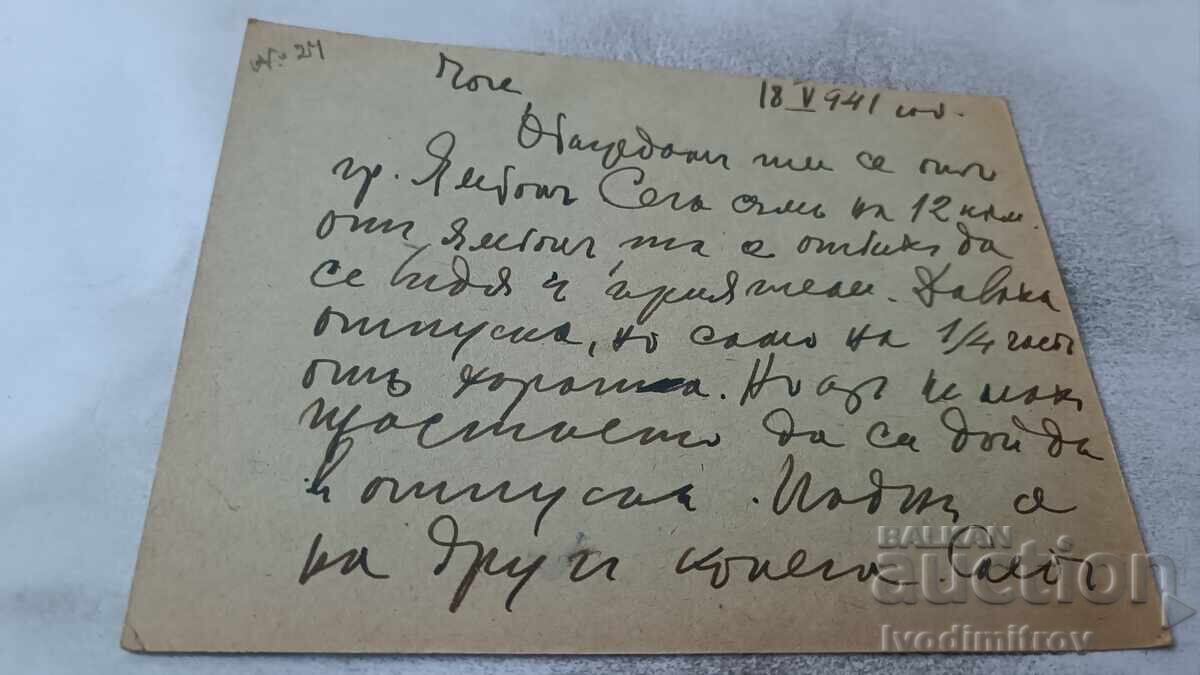 № 24
18 V 941 год.
Обаждам ти се отъ
гр. Ямболъ Сега съмъ на 12 клм.
отъ Ямболъ, та се отбихъ да
се видя с приятели. Даваха
отпуска, но само на 1/4 часть
отъ хората. Но азъ
щастието да си дойда
в отпуска.
на други колега
BALKAN
auction
Ivodimitrov